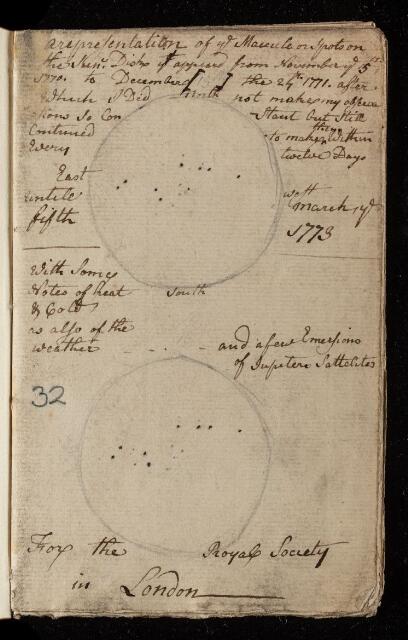 a representation of yᵉ Macule or Spots on
the Suns Disk as appears from November yᵉ 5ᵗʰ
1770. to December [ ] the 24ᵗʰ 1771. after
Which I Did not make my observa
tions so Con Stant but still
Continued to make them Within
Every twelve Days
North
East West
untile March yᵉ
fifth 1773
With Some
Notes of heat South
& Cold
as also of the
weather - - - - and a few Emersions
of Jupiters Sattelites
32
For the Royal Society
in London